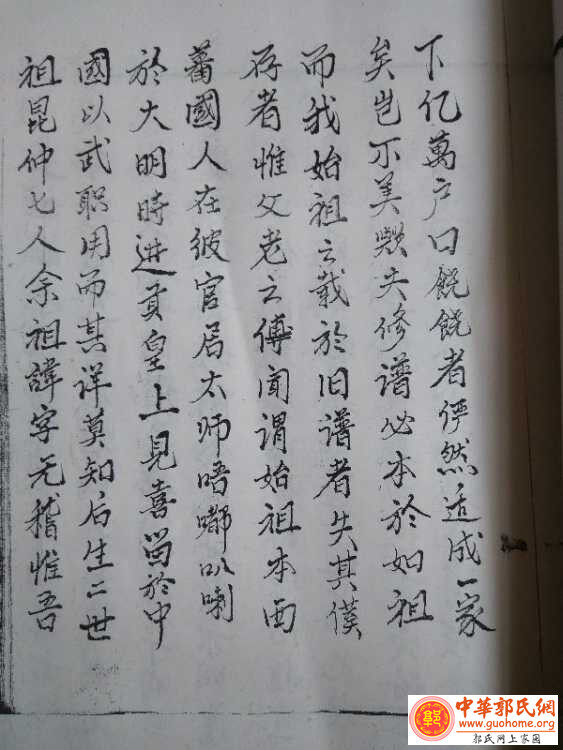 下亿萬户口饶饶者俨然适成一家
矣岂不美欤夫修谱必本於如祖
而我始祖之載於旧譜者失其僕
存者惟父老之傳闻謂始祖本西
蕃國人在彼官居太师唔嘟叭喇
於大明時进贡皇上見喜留於中
國以武职用而其详莫知后生二世
祖昆仲七人余祖諱字无稽惟吾
中華郭氏網
www.guohome.org
郭氏网上家园